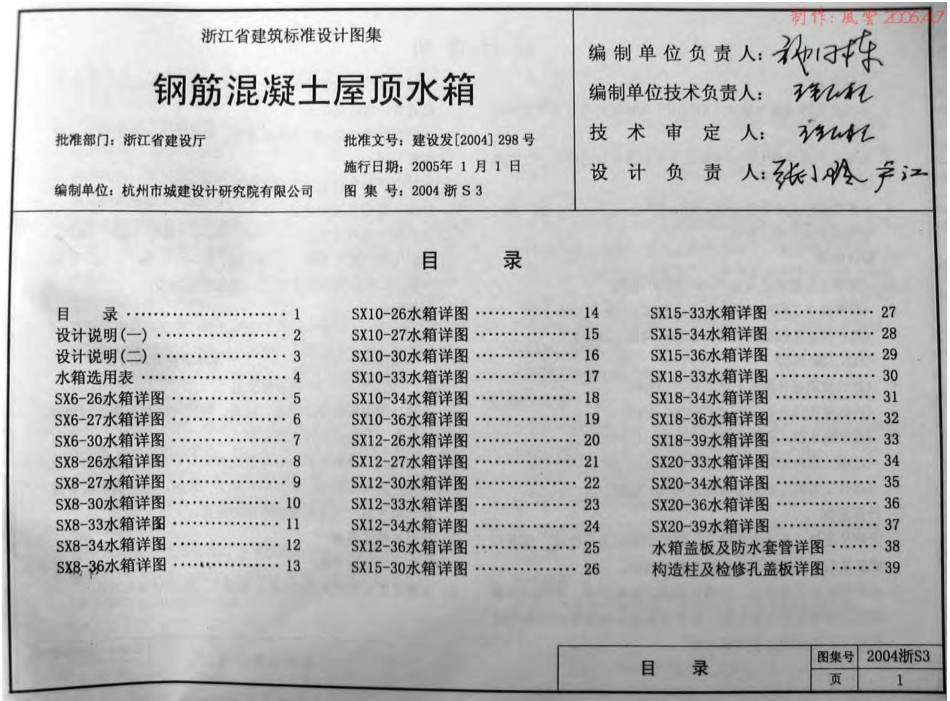 制作: 風雲 2006.4.7
浙江省建筑标准设计图集
钢筋混凝土屋顶水箱
批准部门: 浙江省建设厅
批准文号: 建设发[2004] 298 号
施行日期: 2005年 1 月 1 日
编制单位: 杭州市城建设计研究院有限公司
图 集 号: 2004 浙 S 3
编制单位负责人:
编制单位技术负责人:
技术审定人:
设计负责人: 张小玲 芦江
目 录
目 录 ························ 1
设计说明(一) ························ 2
设计说明(二) ························ 3
水箱选用表 ························ 4
SX6-26水箱详图 ················ 5
SX6-27水箱详图 ················ 6
SX6-30水箱详图 ················ 7
SX8-26水箱详图 ················ 8
SX8-27水箱详图 ················ 9
SX8-30水箱详图 ················ 10
SX8-33水箱详图 ················ 11
SX8-34水箱详图 ················ 12
SX8-36水箱详图 ················ 13
SX10-26水箱详图 ··············· 14
SX10-27水箱详图 ··············· 15
SX10-30水箱详图 ··············· 16
SX10-33水箱详图 ··············· 17
SX10-34水箱详图 ··············· 18
SX10-36水箱详图 ··············· 19
SX12-26水箱详图 ··············· 20
SX12-27水箱详图 ··············· 21
SX12-30水箱详图 ··············· 22
SX12-33水箱详图 ··············· 23
SX12-34水箱详图 ··············· 24
SX12-36水箱详图 ··············· 25
SX15-30水箱详图 ··············· 26
SX15-33水箱详图 ··············· 27
SX15-34水箱详图 ··············· 28
SX15-36水箱详图 ··············· 29
SX18-33水箱详图 ··············· 30
SX18-34水箱详图 ··············· 31
SX18-36水箱详图 ··············· 32
SX18-39水箱详图 ··············· 33
SX20-33水箱详图 ··············· 34
SX20-34水箱详图 ··············· 35
SX20-36水箱详图 ··············· 36
SX20-39水箱详图 ··············· 37
水箱盖板及防水套管详图 ······· 38
构造柱及检修孔盖板详图 ······· 39
目 录
图集号 2004浙S3
页 1